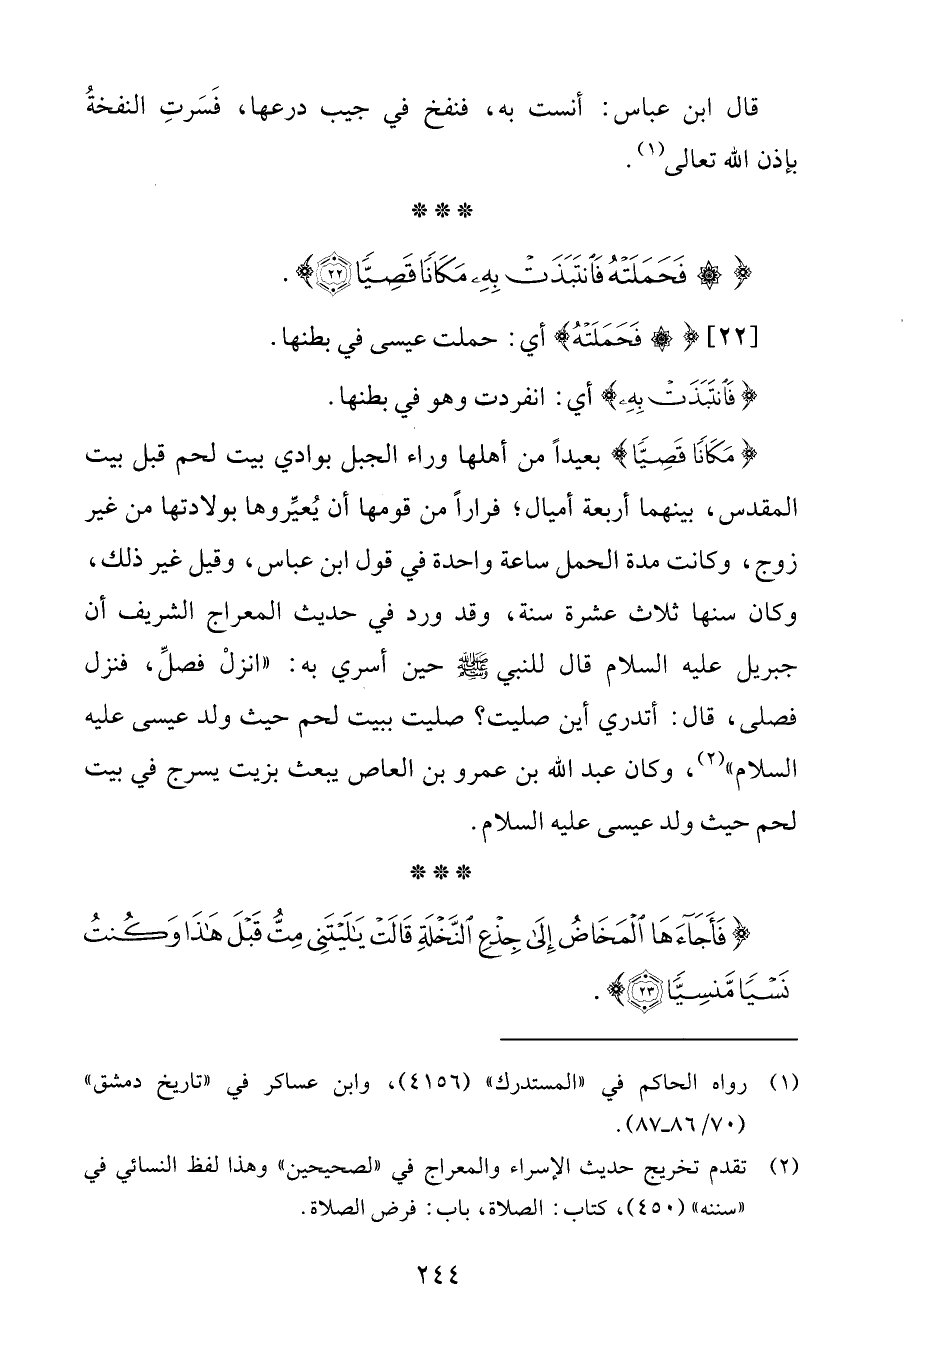 قال ابن عباس: أنست به، فنفخ في جيب درعها، فَسَرتِ النفخةُ
بإذن الله تعالى(١).
* * *
﴿ ۞ فَحَمَلَتْهُ فَٱنتَبَذَتْ بِهِۦ مَكَانًا قَصِيًّا (٢٢)﴾.
[٢٢] ﴿ ۞ فَحَمَلَتْهُ﴾ أي: حملت عيسى في بطنها.
﴿فَٱنتَبَذَتْ بِهِۦ﴾ أي: انفردت وهو في بطنها.
﴿مَكَانًا قَصِيًّا﴾ بعيداً من أهلها وراء الجبل بوادي بيت لحم قبل بيت
المقدس، بينهما أربعة أميال؛ فراراً من قومها أن يُعيِّروها بولادتها من غير
زوج، وكانت مدة الحمل ساعة واحدة في قول ابن عباس، وقيل غير ذلك،
وكان سنها ثلاث عشرة سنة، وقد ورد في حديث المعراج الشريف أن
جبريل عليه السلام قال للنبي ﷺ حين أسري به: «انزلْ فصلِّ، فنزل
فصلى، قال: أتدري أين صليت؟ صليت ببيت لحم حيث ولد عيسى عليه
السلام»(٢)، وكان عبد الله بن عمرو بن العاص يبعث بزيت يسرج في بيت
لحم حيث ولد عيسى عليه السلام.
* * *
﴿فَأَجَآءَهَا ٱلْمَخَاضُ إِلَىٰ جِذْعِ ٱلنَّخْلَةِ قَالَتْ يَٰلَيْتَنِى مِتُّ قَبْلَ هَٰذَا وَكُنتُ
نَسْيًا مَّنسِيًّا (٢٣)﴾.
(١) رواه الحاكم في «المستدرك» (٤١٥٦)، وابن عساكر في «تاريخ دمشق»
(٧٠/ ٨٦ـ٨٧).
(٢) تقدم تخريج حديث الإسراء والمعراج في «لصحيحين» وهذا لفظ النسائي في
«سننه» (٤٥٠)، كتاب: الصلاة، باب: فرض الصلاة.
٢٤٤